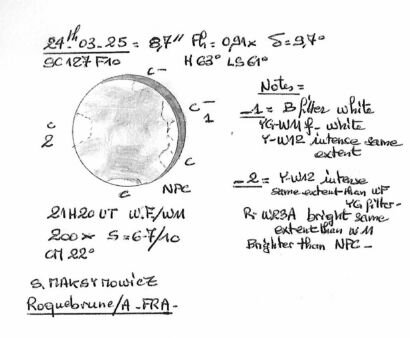 24th.03.25 = 8,7" Ph = 0,91x δ = 9,7°
SC 127 F10 H 63° LS 61°
C-
C-
1
C
C
2
C
NPC
21H20 UT W.F/W11
200x S=6-7/10
CM 22°
S. MAKSYMOWICZ
Roquebrune/A - FRA -
Notes =
_1 = B filter white
YG-W11 f_ white
Y-W12 intence same
extent
_2 = Y-W12 intense
same extent than WF
YG filter -
R- W23A bright same
extent than W11
Brighter than NPC -